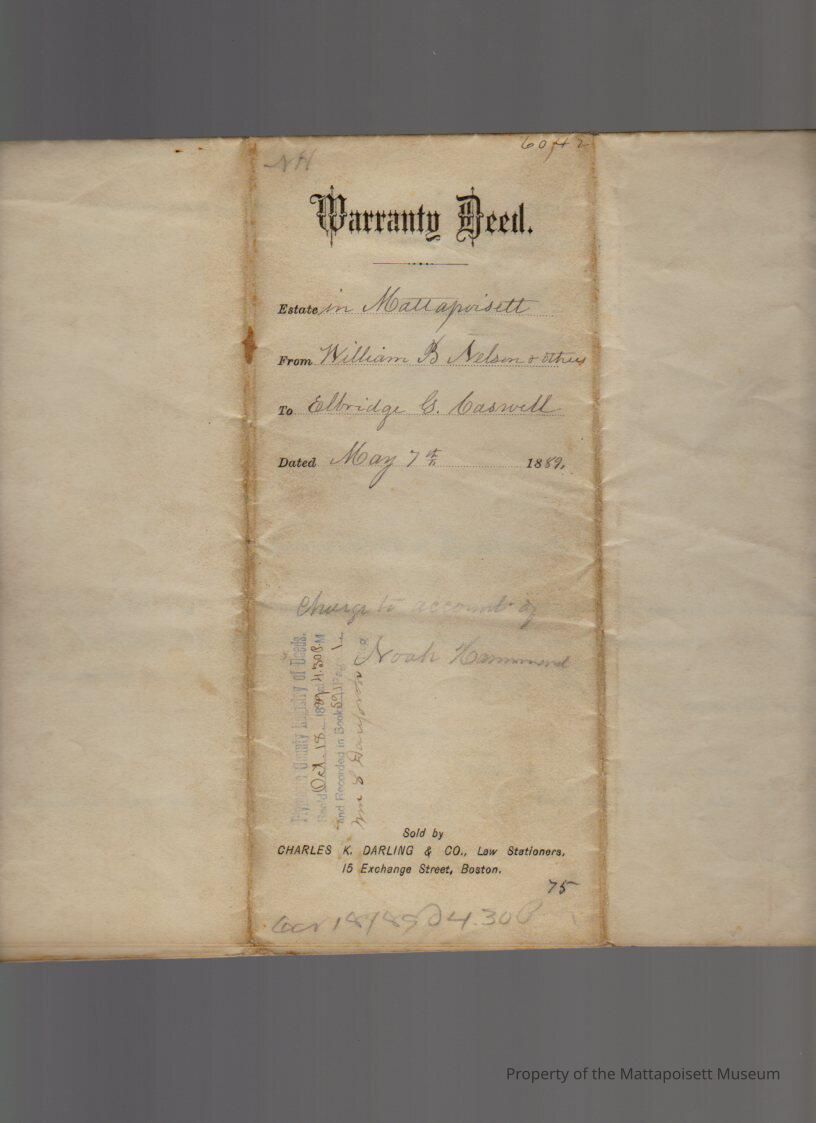 NH
6042
Warranty Deed.
Estate in Mattapoisett
From William B Nelson & others
To Elbridge G. Caswell
Dated May 7th 1889.
Charge to account of
Noah Hammond
Plymouth County Registry of Deeds.
Rec'd Oct. 18 1889 at 4.30 P.M
and Recorded in Book 591 Page
Wm S Danforth Reg
Sold by
CHARLES K. DARLING & CO., Law Stationers,
15 Exchange Street, Boston.
75
Oct 18/89 4.30 P
Property of the Mattapoisett Museum